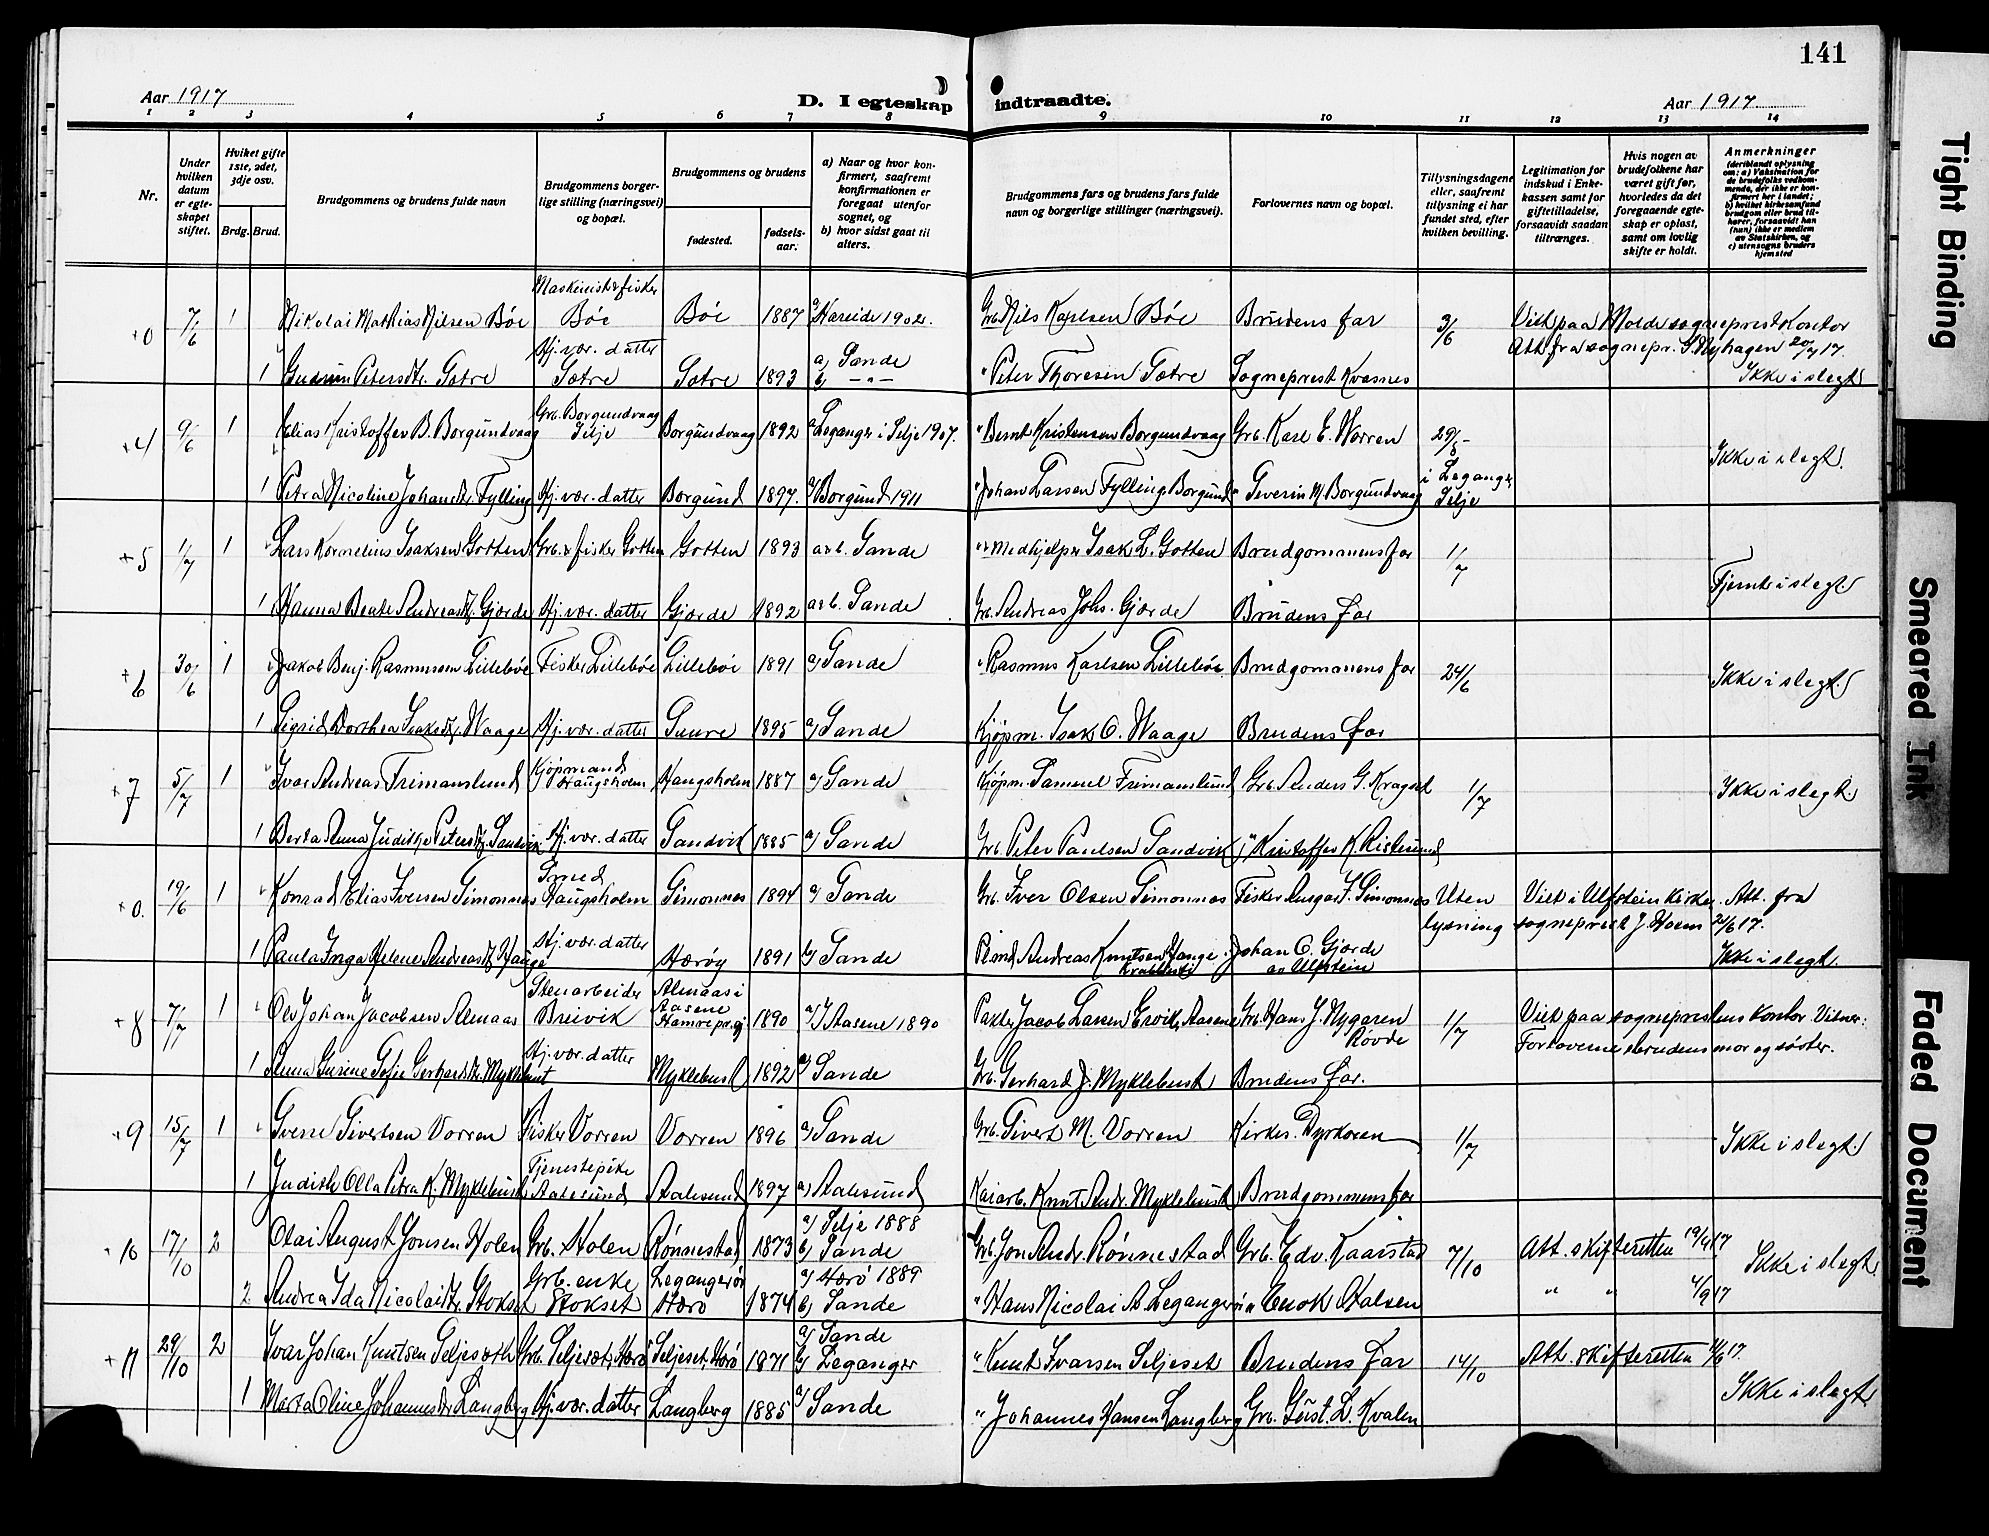 141
Aar 1917
D. I egteskap
indtraadte.
Aar 1917
1 2 3 4 5 6 7 8 9 10 11 12 13 14
Nr.
Under hvilken datum er egteskapet stiftet.
Hvilket gifte 1ste, 2det, 3dje osv.
Brdg. Brud.
Brudgommens og brudens fulde navn
Brudgommens borgerlige stilling (næringsvei) og bopæl.
Brudgommens og brudens
fødested.
fødselsaar.
a) Naar og hvor konfirmert, saafremt konfirmationen er foregaat utenfor sognet, og
b) hvor sidst gaat til alters.
Brudgommens fars og brudens fars fulde navn og borgerlige stillinger (næringsvei).
Forlovernes navn og bopæl.
Tillysningsdagene eller, saafremt tillysning ei har fundet sted, efter hvilken bevilling.
Legitimation for indskud i Enkekassen samt for giftetilladelse, forsaavidt saadan tiltrænges.
Hvis nogen av brudefolkene har været gift før, hvorledes da det foregaaende egteskap er opløst, samt om lovlig skifte er holdt.
Anmerkninger
(deriblandt oplysning om: a) Vaksination for de brudefolks vedkommende, der ikke er konfirmert her i landet;
b) hvilket kirkesamfund brudgom eller brud tilhører, forsaavidt han (hun) ikke er medlem av Statskirken, og
c) utensogns bruders hjemsted
0 7/6 1 Nikolai Mathias Nilsen Bøe Maskinist & fisker Bøe Bøe 1887 a) Hareide 1902. Grb. Nils Karlsen Bøe Brudens far 3/6 Viet paa Molde sogneprestkontor
Att. fra sognepr. S. Nyhagen 20/7 17.
1 Gudrun Petersdtr. Sætre Hj. vær. datter Sætre Sætre 1893 a) Sande b) -"- " Peter Thoresen Sætre Sogneprest Kvasnes Ikke i slegt
4 9/6 1 Elias Kristoffer B. Borgundvaag Grb. Borgundvaag Selje Borgundvaag 1892 a) Leganger i Selje 1907. " Bernt Kristensen Borgundvaag Grb. Karl E. Worren 29/5 - i Leganger, Selje Ikke i slegt.
1 Petra Nicoline Johansdtr. Fylling Hj. vær. datter Borgund 1897. a) Borgund 1911 " Johan Larsen Fylling, Borgund " Severin M. Borgundvaag
5 1/7 1 Lars Kornelius Isaksen Gotten Grb. & fisker Gotten Gotten 1893 a & b. Sande " Medhjelper Isak L. Gotten Brudgommens far 1/7 Fjernt i slegt
1 Hanna Beate Andreasdtr. Gjærde Hj. vær. datter Gjærde 1892 a & b. Sande Grb. Andreas Johs. Gjærde Brudens far
6 30/6 1 Jakob Benj. Rasmussen Lillebøe Fisker Lillebøe Lillebøe 1891 a) Sande " Rasmus Karlsen Lillebøe Brudgommens far 24/6 Ikke i slegt.
1 Sigrid Dorthea Isaksdtr. Waage Hj. vær. datter Gurre 1895 a) Sande Kjøpm. Isak O. Waage Brudens far
7 5/7 1 Ivar Andreas Frimanslund Kjøpmand Haugsholm Haugsholm 1887 a) Sande Kjøpm. Samuel Frimanslund Grb. Anders G. Kragset 1/7 Ikke i slegt.
1 Berta Anna Judithe Petersdtr. Sandvik Hj. vær. datter Sandvik 1885 a) Sande Grb. Peter Paulsen Sandvik " Kristoffer K. Ristesund
0. 19/6 1 Konrad Elias Iversen Simonnes Smed Haugsholm Simonnes 1894 a) Sande Grb. Iver Olsen Simonnes Fisker Ansgar I. Simonnes Uten lysning Viet i Ulfstein kirke, Att. fra
sogneprest J. Hoem 21/6 17.
1 Paula Inga Helene Andreasdtr. Hauge Hj. vær. datter Herøy 1891 b) Sande Pens. Andreas Knutsen Hauge Johan O. Gjærde av Ulfstein Ikke i slegt.
8 7/7 1 Ole Johan Jacobsen Almaas Stenarbeider Breivik Almaas i Aasene Hamre pr.gj 1890 a) Aasene 1890 Pakter Jacob Larsen Ervik, Aasene Grb. Hans J. Nygaren Rovde 1/7 Viet paa sogneprestens kontor. Vitner:
Forloverne & brudens mor og søster.
1 Anna Gurine Sofie Gerhardsdtr. Myklebust Hj. vær. datter Myklebust 1892 a) Sande Grb. Gerhard J. Myklebust Brudens far.
9 15/7 1 Sverre Sivertsen Vorren Fisker Vorren Vorren 1896 a) Sande Grb. Sivert M. Vorren Kirkes. Dyrkoren 1/7 Ikke i slegt
1 Judith Olla Petra K. Myklebust Tjenestepike Aalesund Aalesund 1897 a) Aalesund Kaiarb. Knut Andr. Myklebust Brudgommens far
10 17/10 2 Olai August Jonsen Holen Grb. Holen Rønnestad 1873 a) Selje 1888 b) Sande Grb. Jon Andr. Rønnestad Grb. Edv. Kaarstad 7/10 Att. skifteretten 19/9 17 Ikke i slegt.
2 Andrea Ida Nicolaidtr. Stokset Grb. enke Stokset Legangerør Herø 1874 a) Herø 1889 b) Sande " Hans Nicolai A. Legangerør " Enok Aalsen " " 4/9 17
11 29/10 2 Ivar Johan Knutsen Seljeseth Grb. Seljeset, Herø Seljeset, Herø 1871 a) Sande b) Leganger " Knut Ivarsen Seljeset Brudens far 14/10 Att. skifteretten 17.
1 Marta Oline Johannesdtr. Langberg Hj. vær. datter Langberg 1885 a) Sande " Johannes Hansen Langberg Grb. Gust. L. Kvalen Ikke i slegt
Tight Binding
Smeared Ink
Faded Document